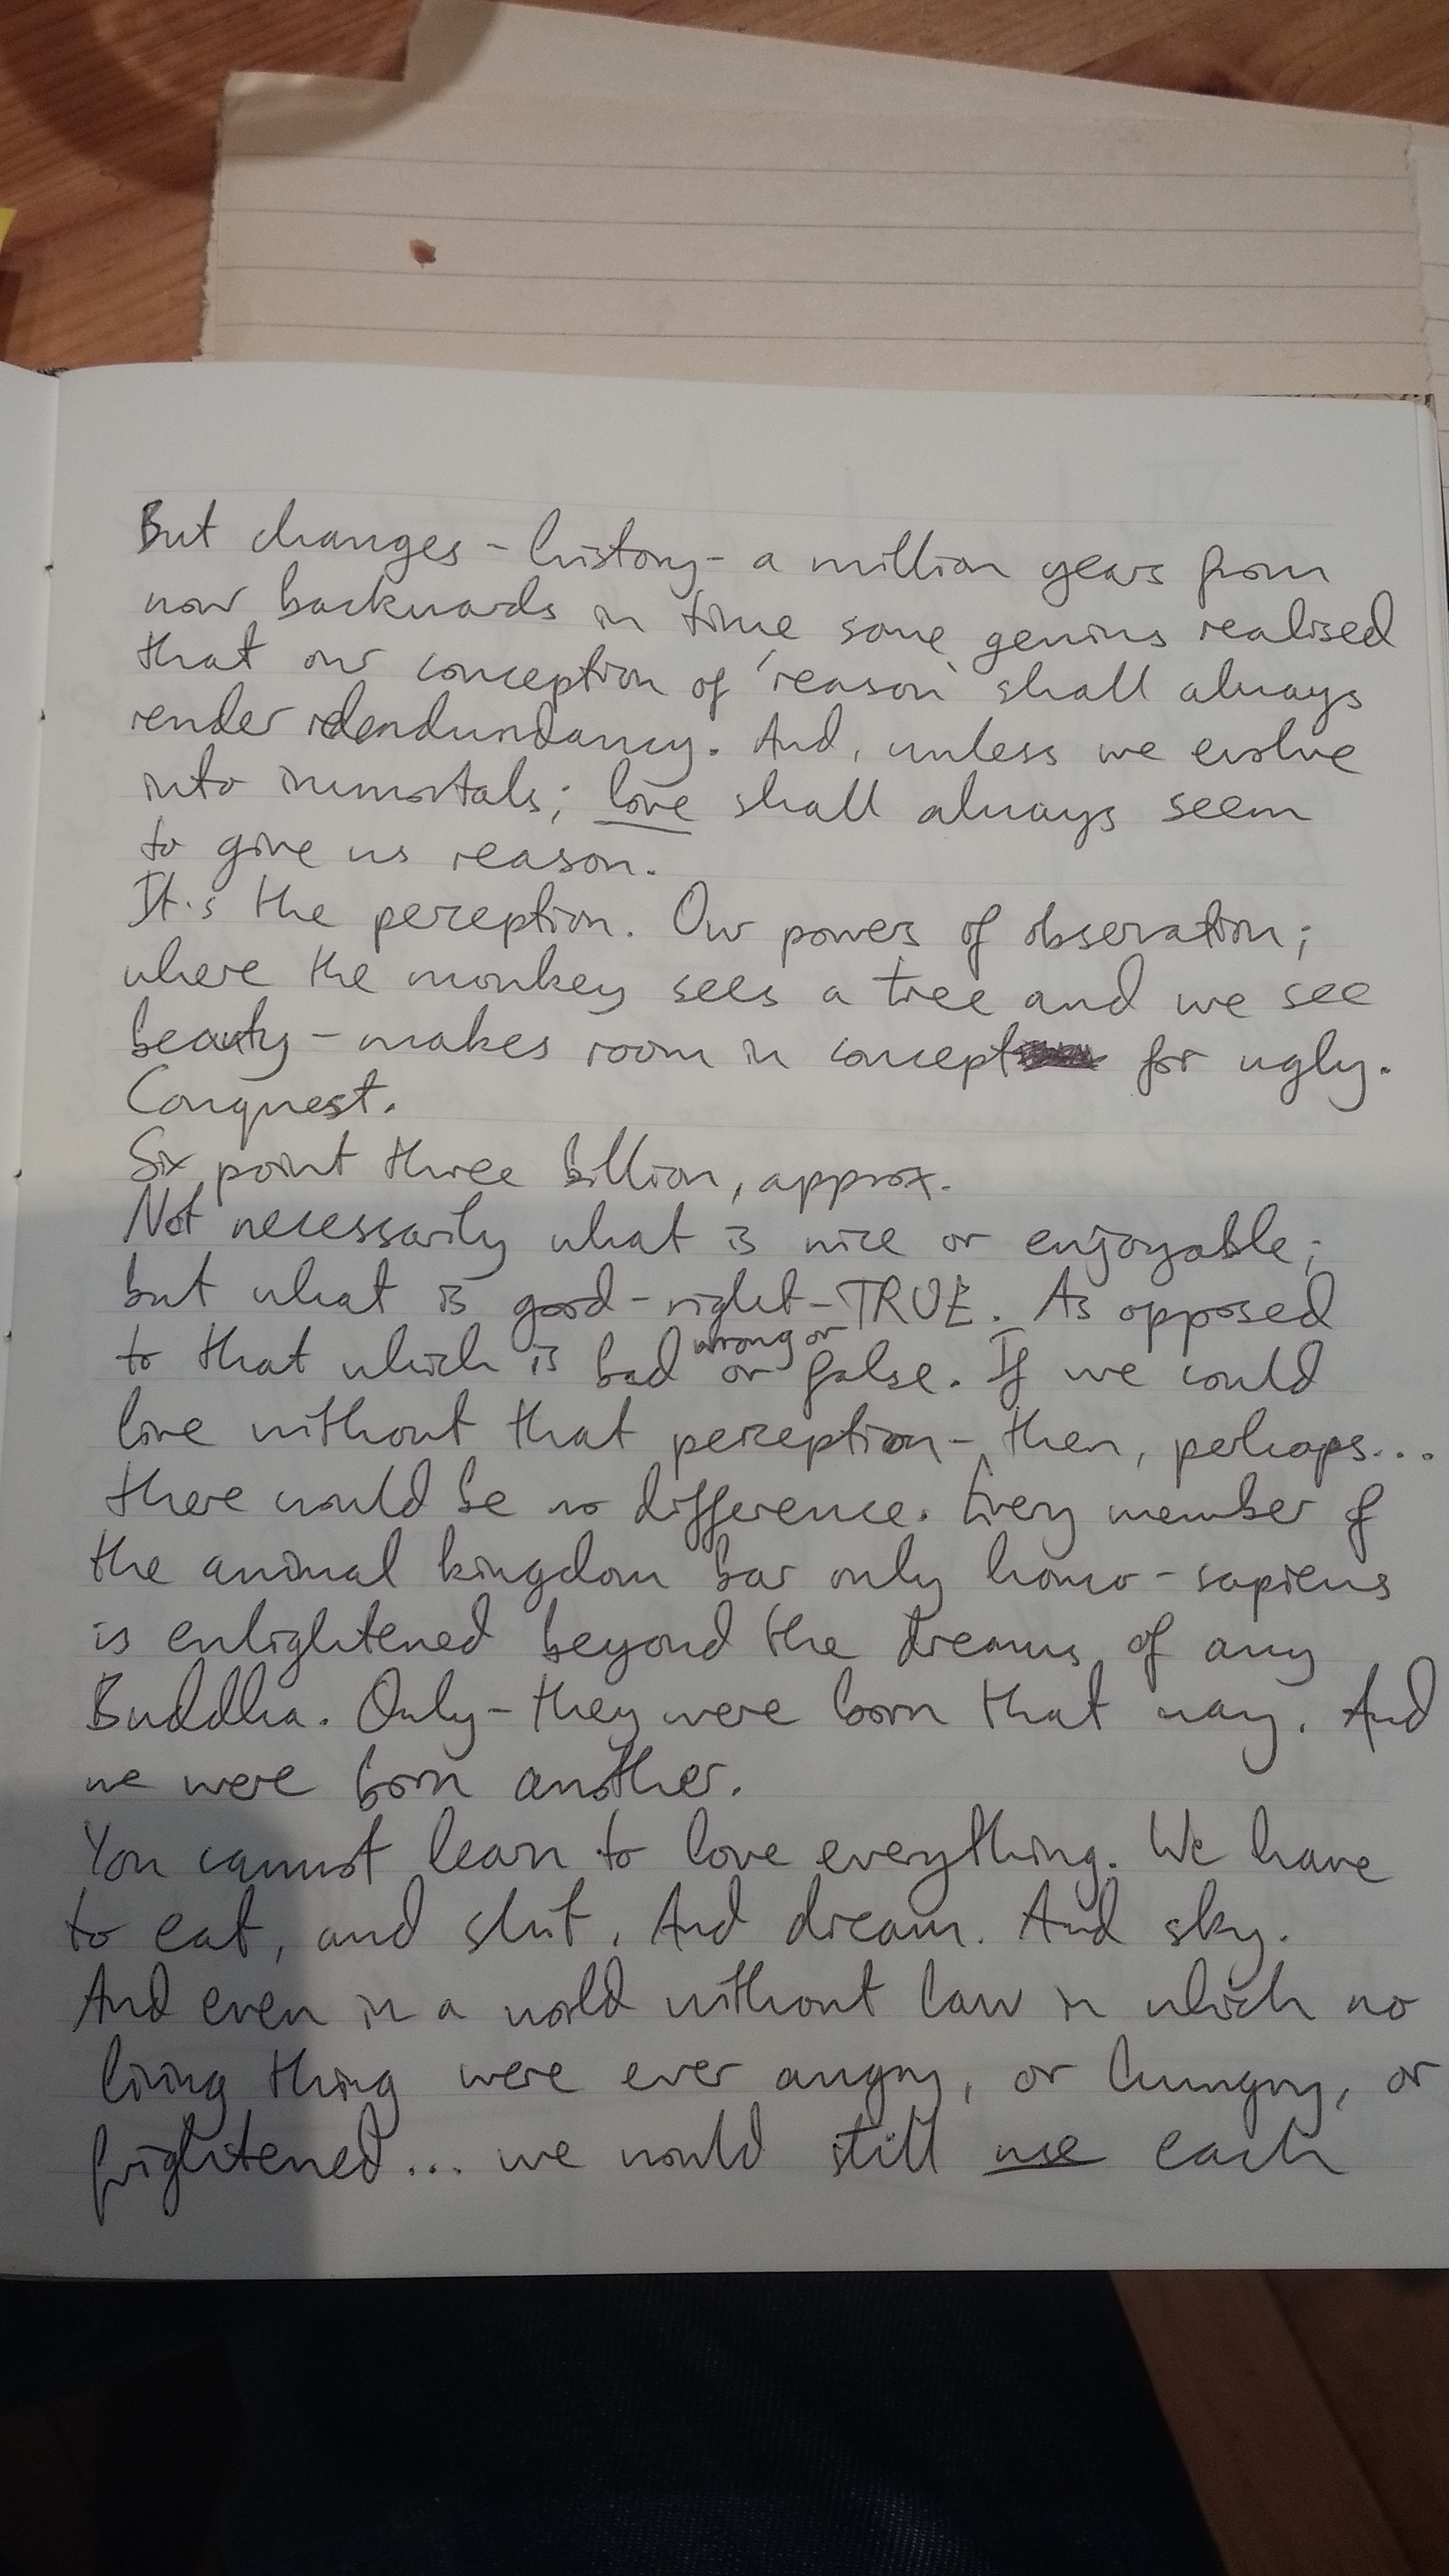 But changes - history - a million years from
now backwards in time some genius realised
that our conception of 'reason' shall always
render redundancy. And, unless we evolve
into immortals; love shall always seem
to give us reason.
It's the perception. Our powers of observation;
where the monkey sees a tree and we see
beauty - makes room in concept for ugly.
Conquest.
Six point three billion, approx.
Not necessarily what is nice or enjoyable;
but what is good - right - TRUE. As opposed
to that which is bad wrong or or false. If we could
live without that perception - then, perhaps...
there would be no difference. Every member of
the animal kingdom bar only homo-sapiens
is enlightened beyond the dreams of any
Buddha. Only - they were born that way. And
we were born another.
You cannot learn to love everything. We have
to eat, and shit. And dream. And sky.
And even in a world without law in which no
living thing were ever angry, or hungry, or
frightened... we would still use each